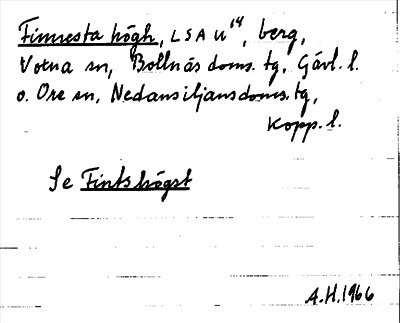 Finnesta högh, LSA U14, berg,
Votna sn, Bollnäs doms. tg, Gävl. l.
o. Ore sn, Nedansiljans doms. tg,
Kopp. l.
Se Fintshögst
A.H. 1966